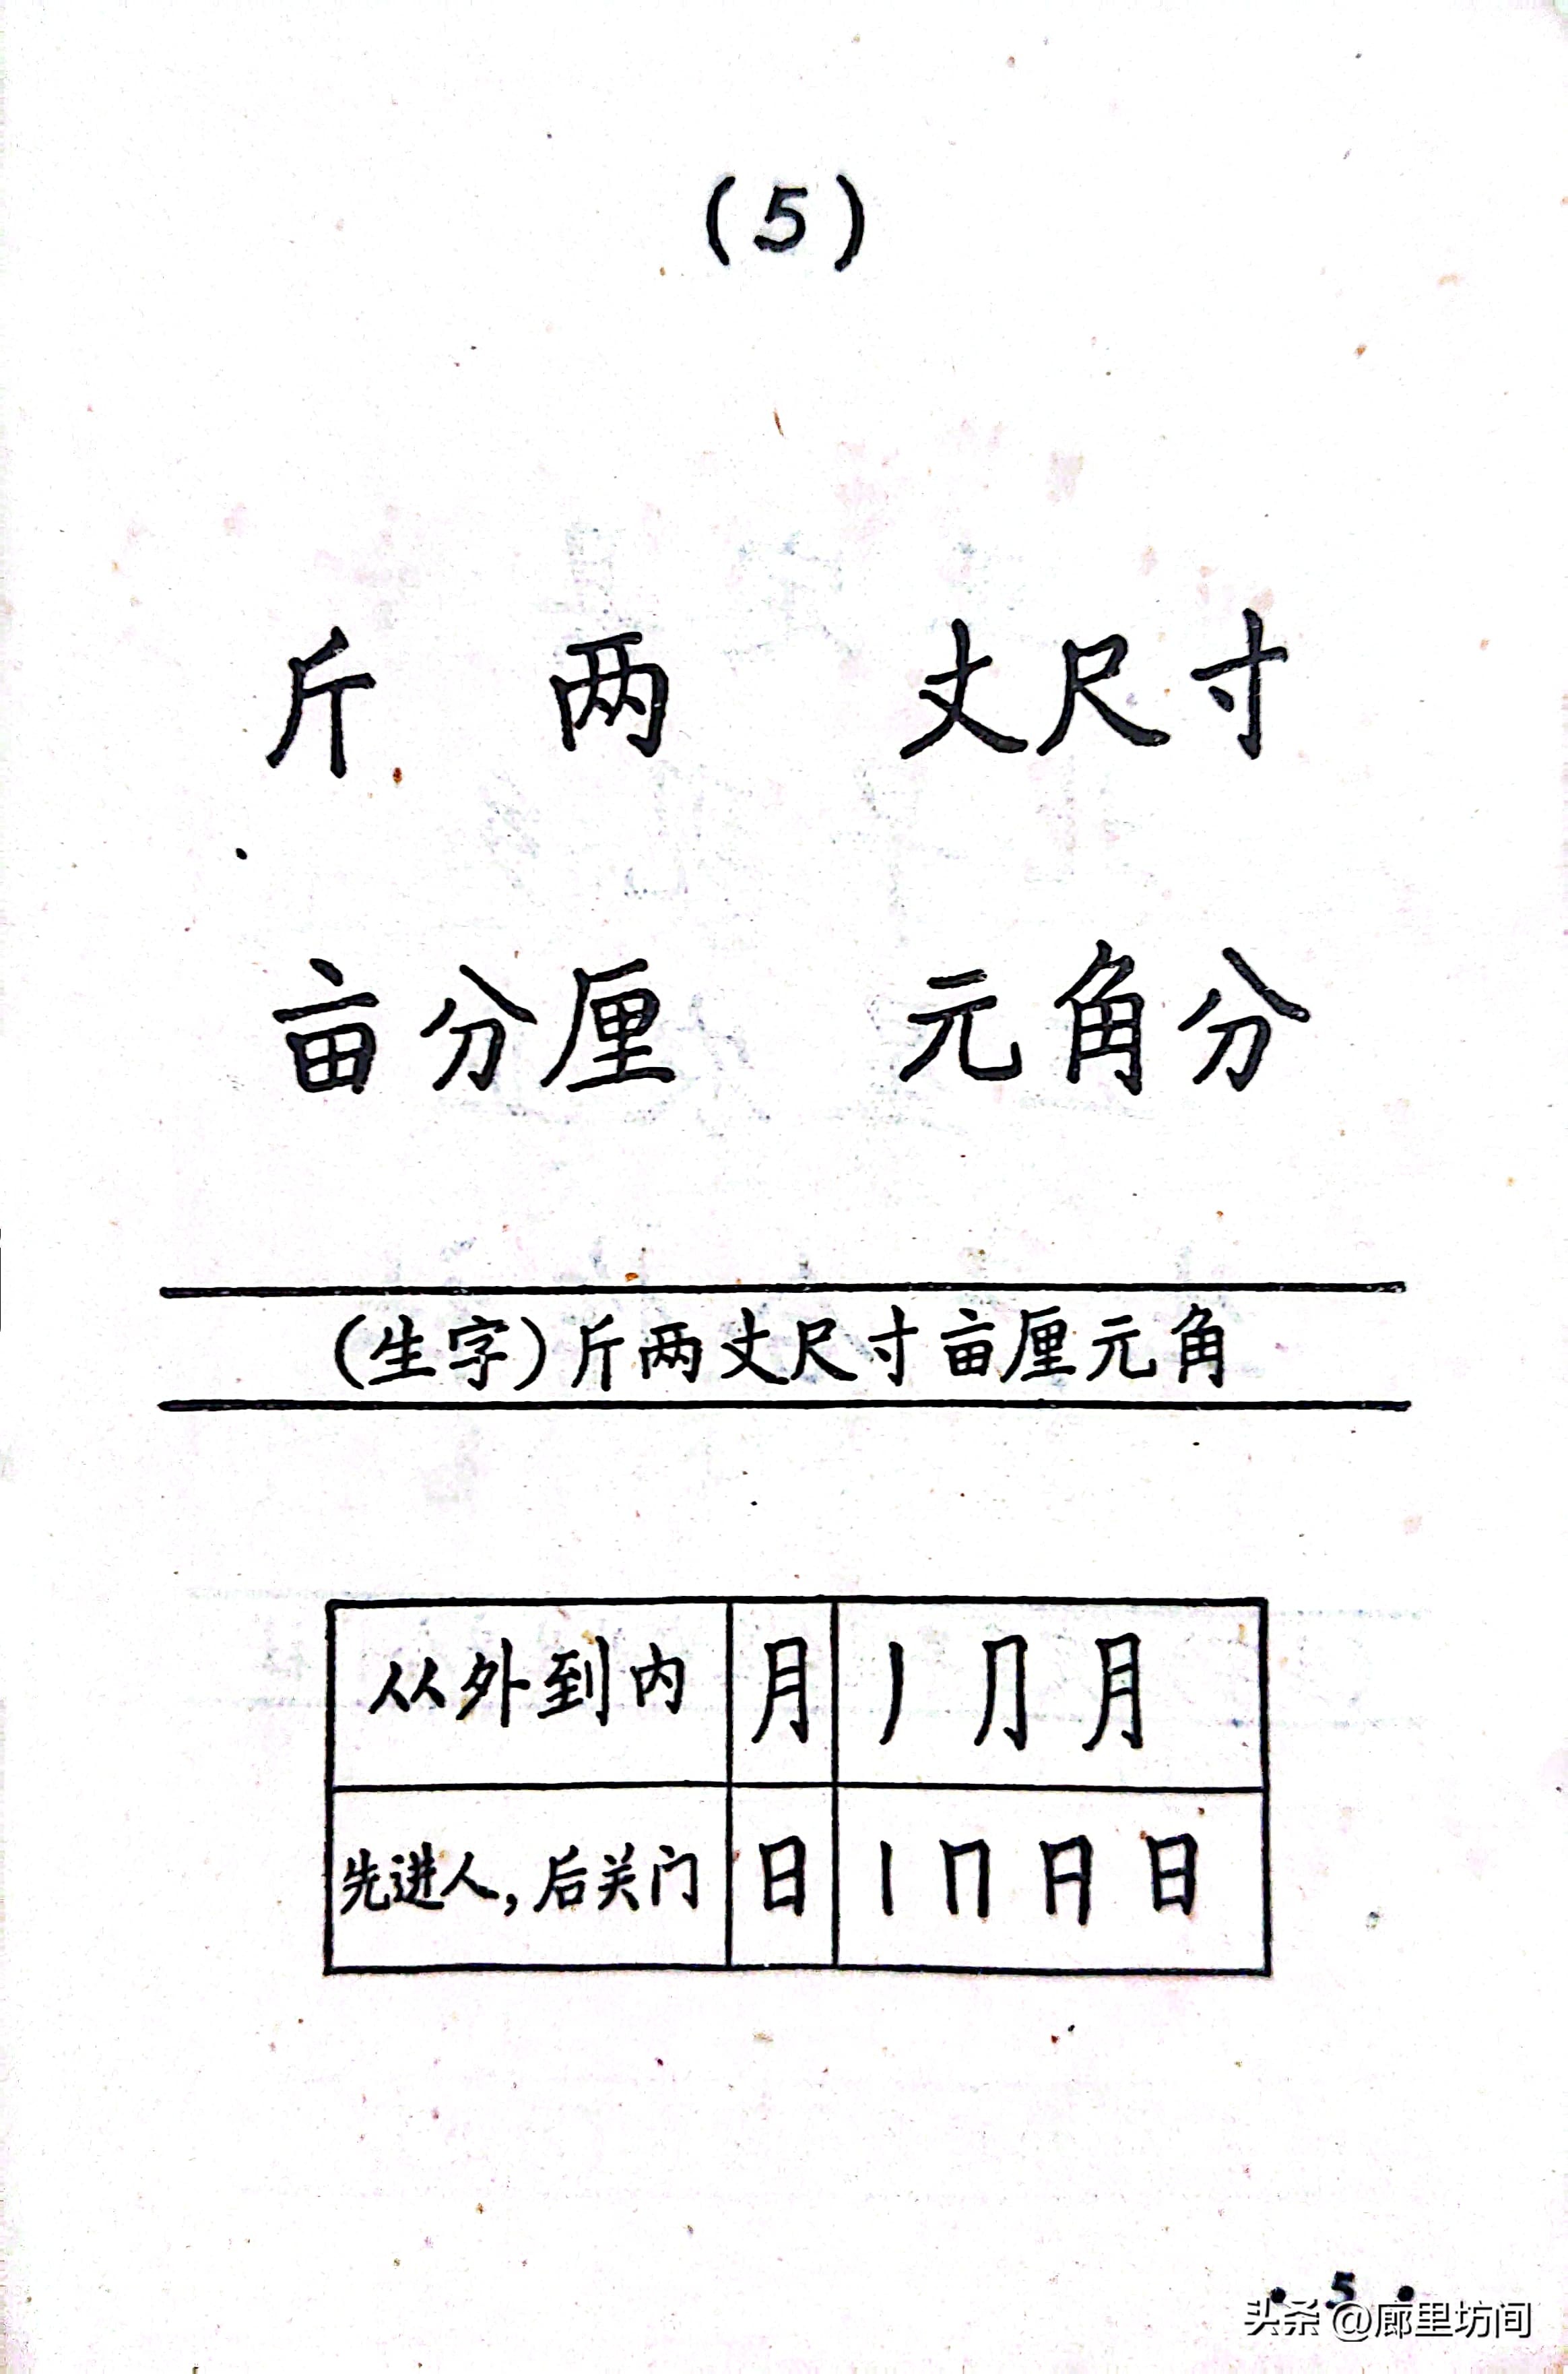 (5)
斤 两 丈尺寸
亩分厘 元角分
(生字)斤两丈尺寸亩厘元角
从外到内 月 丿 ⺆ 月
先进人，后关门 日 丨 冂 日
·5·
头条@廊里坊间